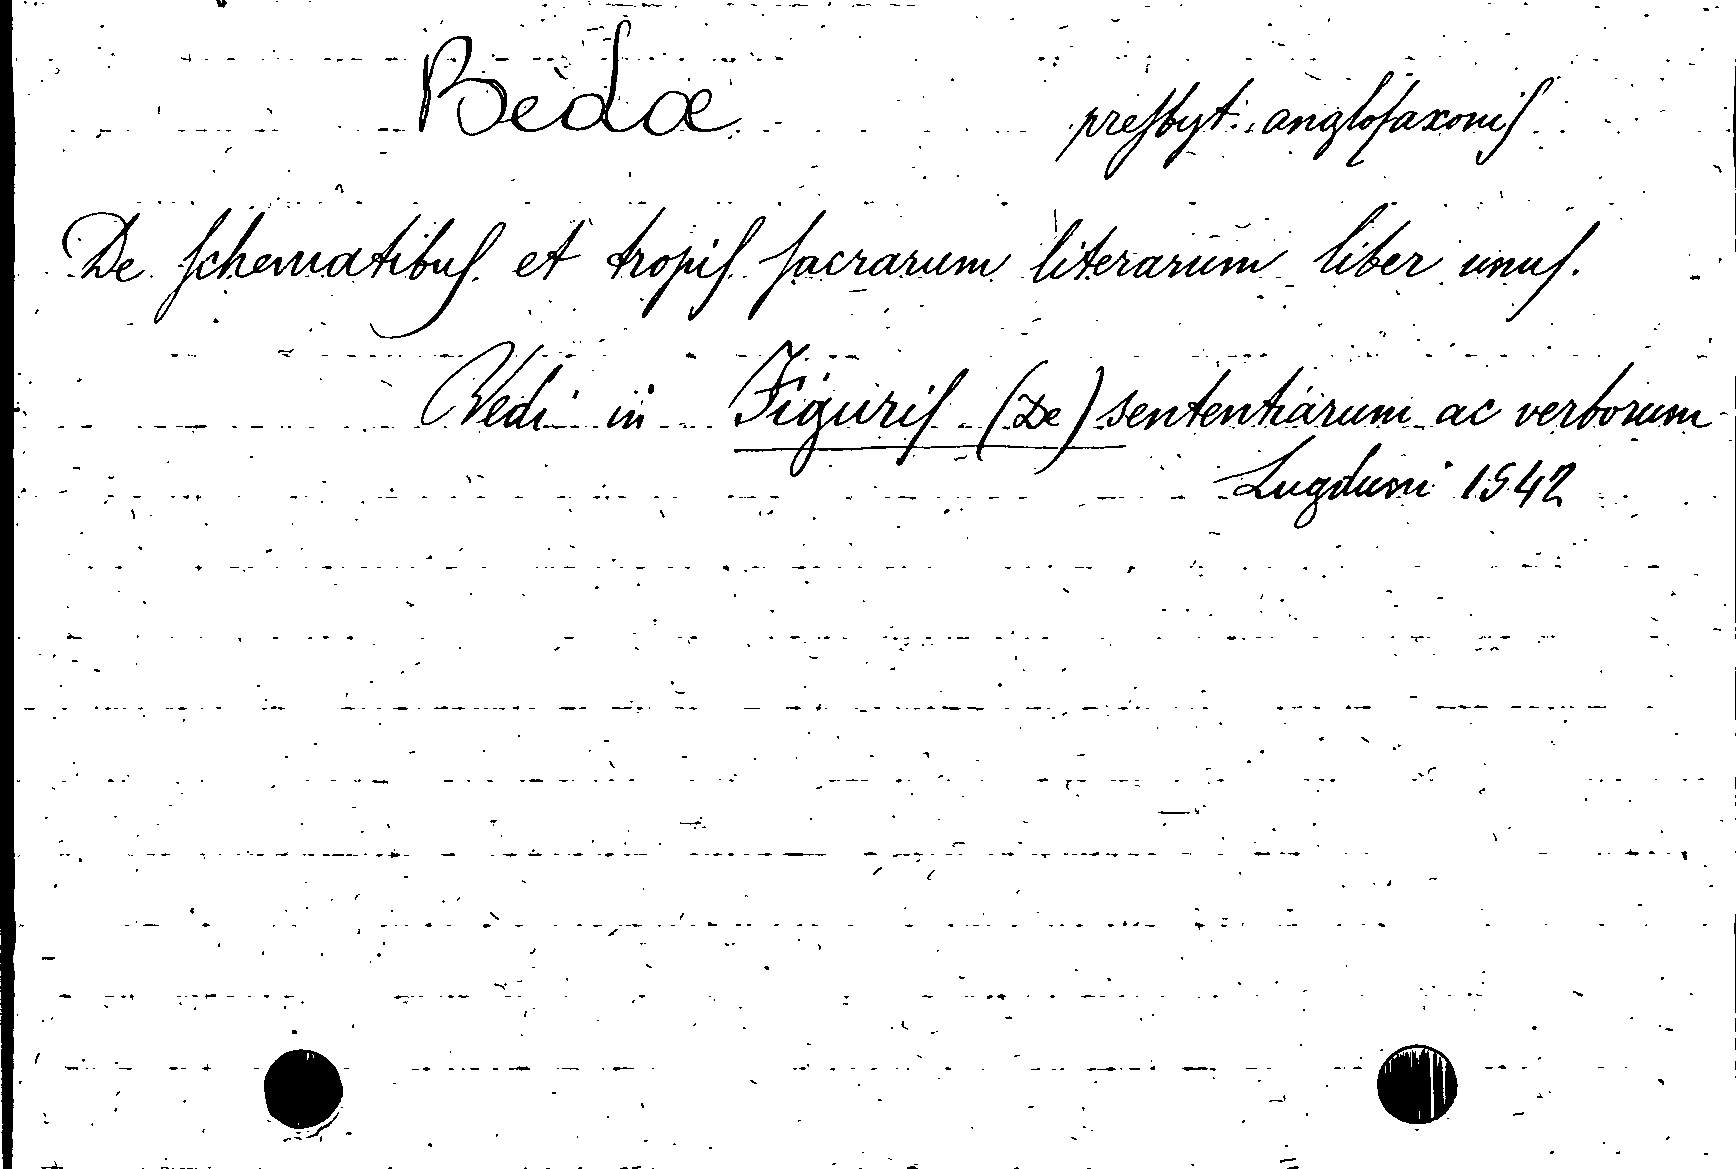 Bedæ presbyt. anglosaxonis
De schematibus et tropis sacrarum literarum liber unus.
Vedi in Figuris (De) sententiarum ac verborum
Lugduni 1542